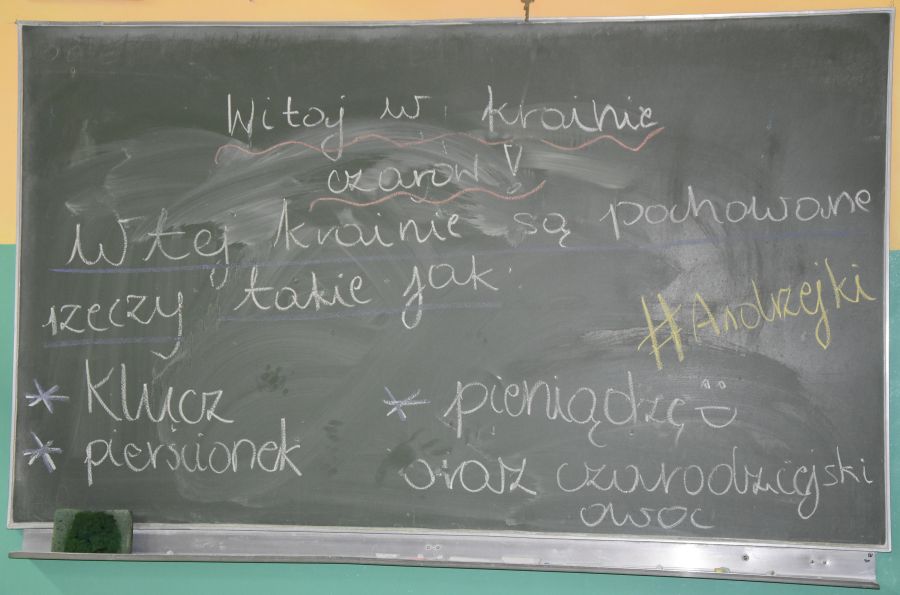 Witaj w krainie
czarów!
W tej krainie są pochowane
rzeczy takie jak:
#Andrzejki
* Klucz
* pierścionek
* pieniądzę
oraz czarodziejski
owoc